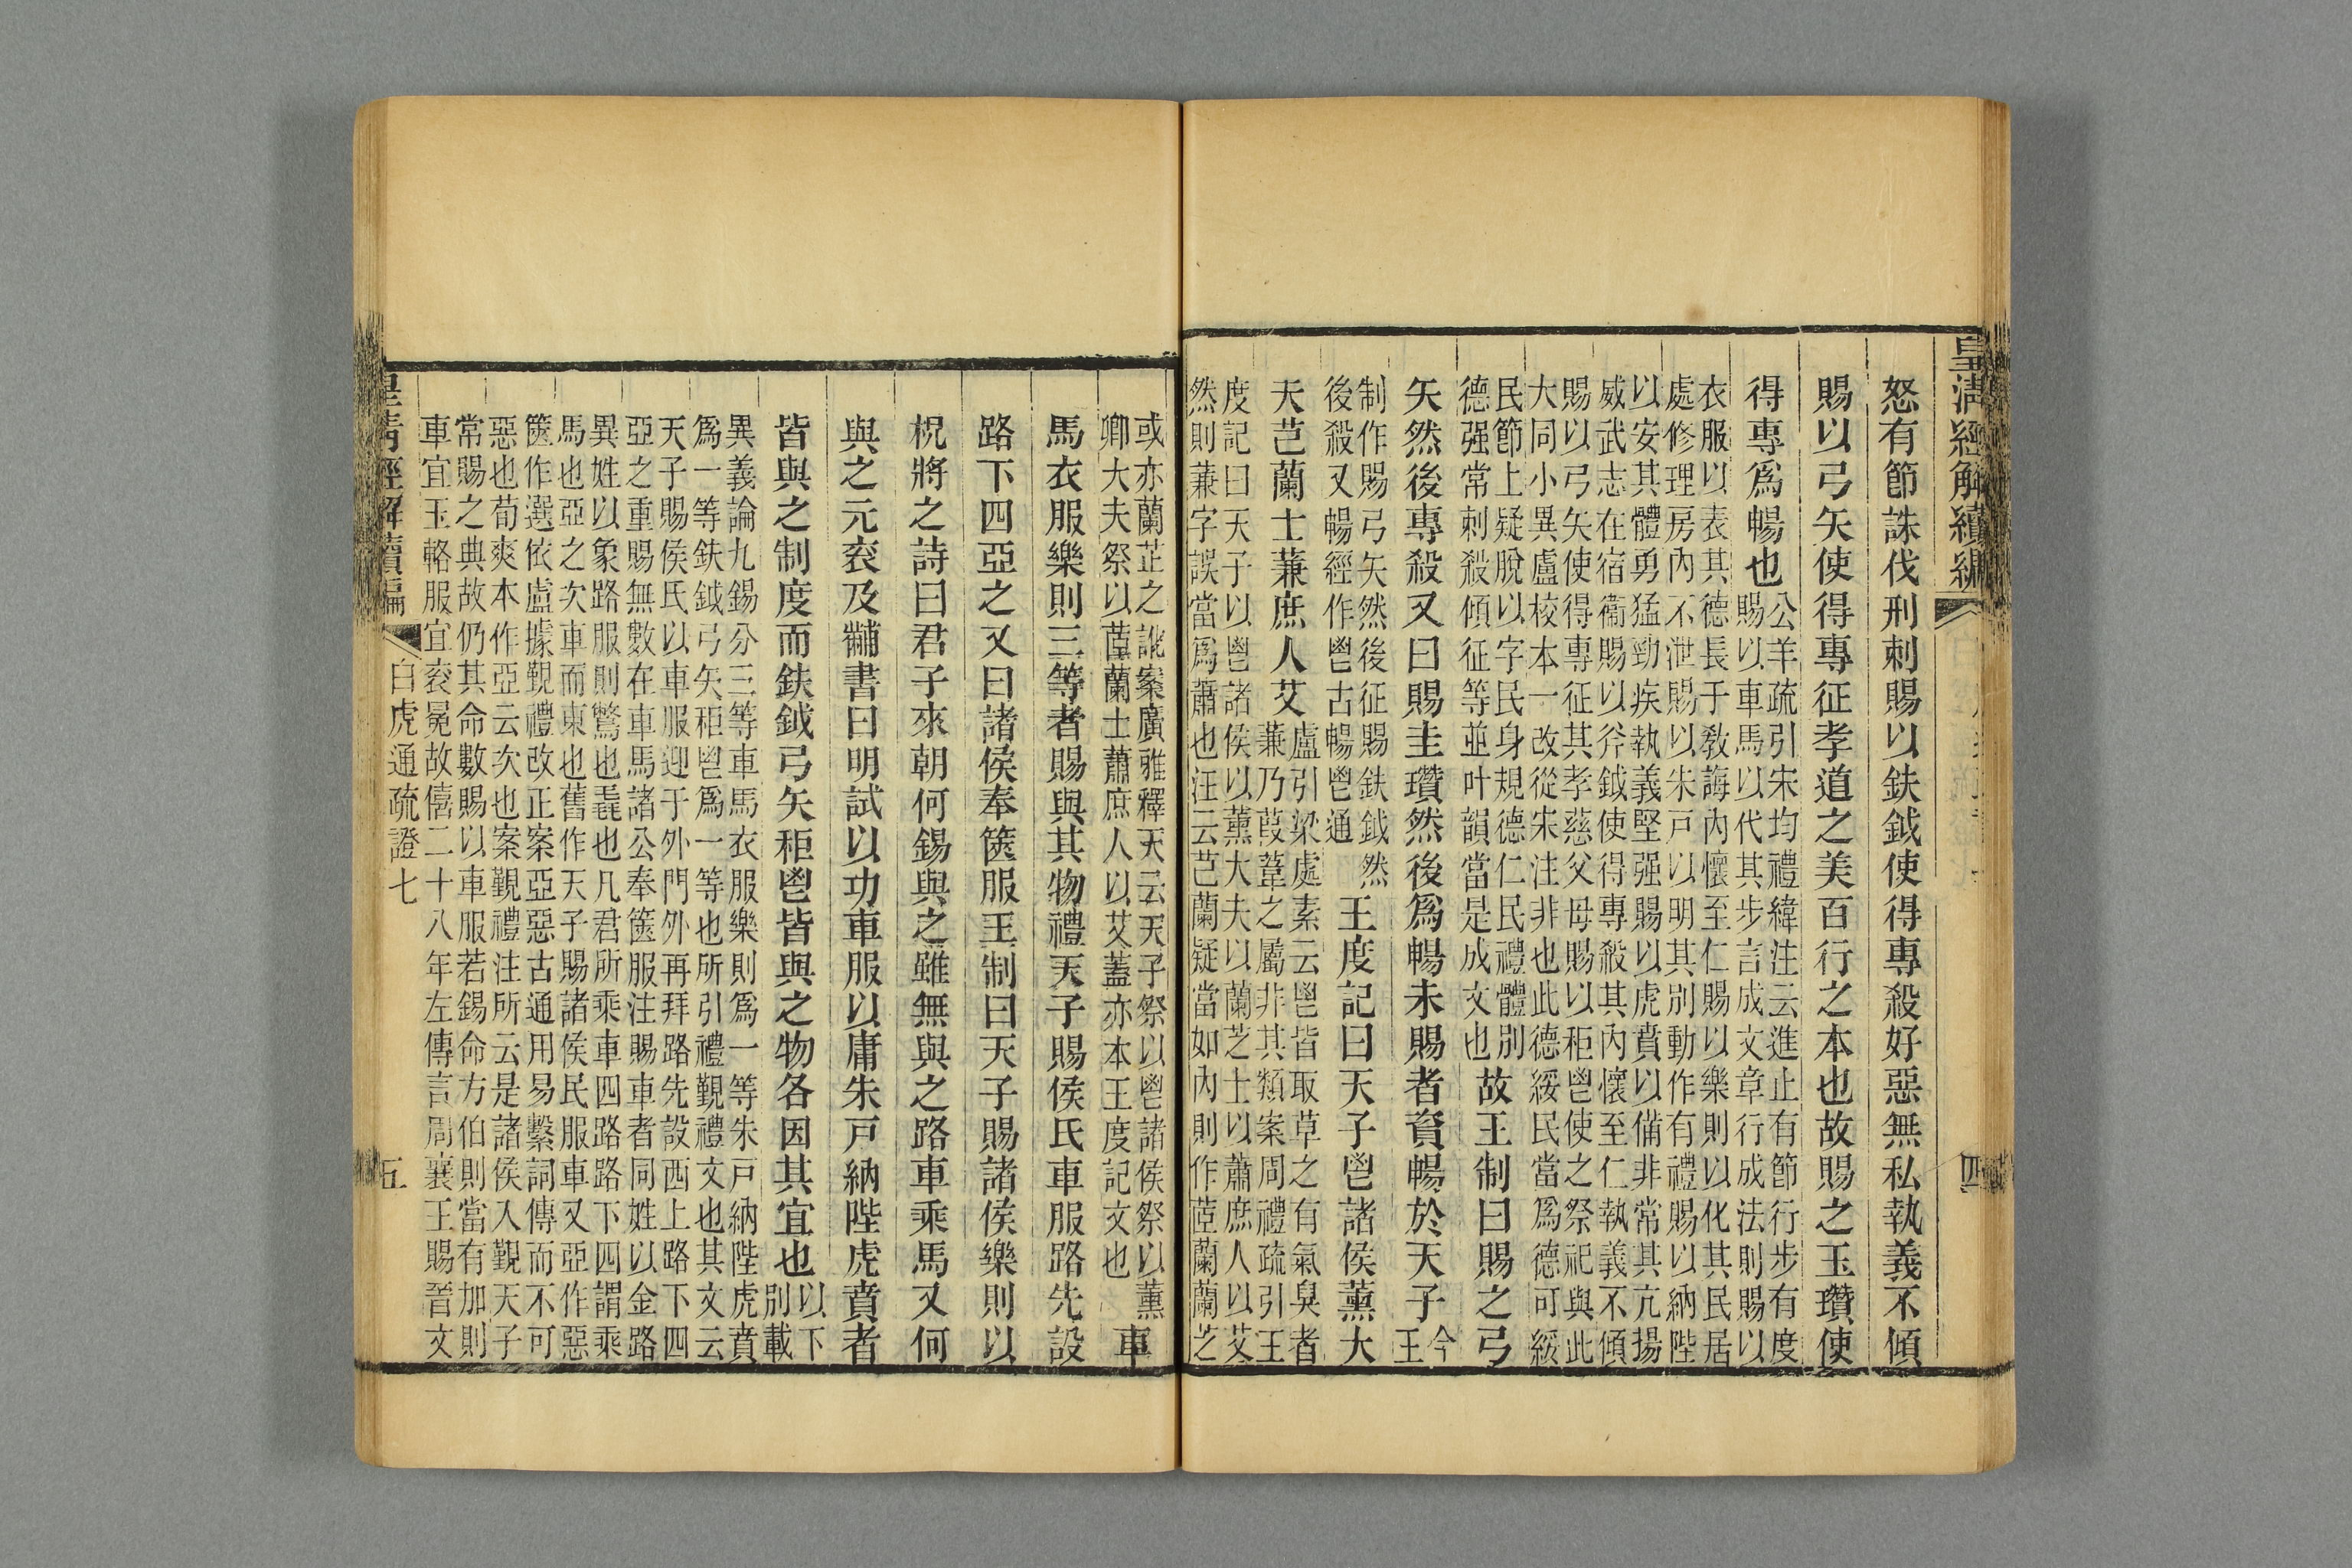 皇淸經解續編
四
怒有節誅伐刑刺賜以鈇鉞使得專殺好惡無私執義不傾
賜以弓矢使得專征孝道之美百行之本也故賜之玉瓚使
得專爲暢也
公羊疏引宋均禮緯注云進止有節行步有度
賜以車馬以代其步言成文章行成法則賜以
衣服以表其德長于敎誨內懷至仁賜以樂則以化其民居
處修理房內不泄賜以朱戸以明其別動作有禮賜以納陛
以安其體勇猛勁疾執義堅强賜以虎賁以備非常其亢揚
威武志在宿衞賜以斧鉞使得專殺其內懷至仁執義不傾
賜以弓矢使得專征其孝慈父母賜以秬鬯使之祭祀與此
大同小異盧校本一改從宋注非也此德綏民當爲德可綏
民節上疑脫以字民身規德仁民禮體別
德强常刺殺傾征等並叶韻當是成文也
故王制曰賜之弓
矢然後專殺又曰賜圭瓚然後爲暢未賜者資暢於天子
今
王
制作賜弓矢然後征賜鈇鉞然
後殺又暢經作鬯古暢鬯通
王度記曰天子鬯諸侯薰大
天芑蘭士蒹庶人艾
盧引梁處素云鬯皆取草之有氣臭者
蒹乃葭葦之屬非其類案周禮疏引王
度記曰天子以鬯諸侯以薰大夫以蘭芝士以蕭庶人以艾
然則蒹字誤當爲蕭也汪云芑蘭疑當如內則作茝蘭蘭芝
或亦蘭芷之訛案廣雅釋天云天子祭以鬯諸侯祭以薰
卿大夫祭以茝蘭士蕭庶人以艾蓋亦本王度記文也
車
馬衣服樂則三等者賜與其物禮天子賜侯氏車服路先設
路下四亞之又曰諸侯奉篋服王制曰天子賜諸侯樂則以
柷將之詩曰君子來朝何錫與之雖無與之路車乘馬又何
與之元衮及黼書曰明試以功車服以庸朱戸納陛虎賁者
皆與之制度而鈇鉞弓矢秬鬯皆與之物各因其宜也
以下
別載
異義論九錫分三等車馬衣服樂則爲一等朱戸納陛虎賁
爲一等鈇鉞弓矢秬鬯爲一等也所引禮覲禮文也其文云
天子賜侯氏以車服迎于外門外再拜路先設西上路下四
亞之重賜無數在車馬諸公奉篋服注賜車者同姓以金路
異姓以象路服則驚也毳也凡君所乘車四路路下四謂乘
馬也亞之次車而東也舊作天子賜諸侯民服車又亞作惡
篋作選依盧據覲禮改正案亞惡古通用易繫詞傳而不可
惡也荀爽本作亞云次也案覲禮注所云是諸侯入覲天子
常賜之典故仍其命數賜以車服若錫命方伯則當有加則
車宜玉輅服宜衮冕故僖二十八年左傳言周襄王賜晉文
皇淸經解續編
白虎通疏證七
五